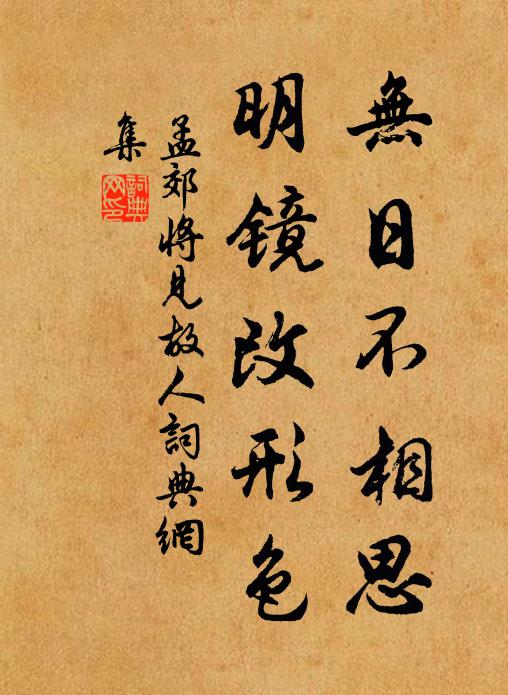 無日不相思
明镜改形色
孟郊將見故人詞典網
集
詞典
网印